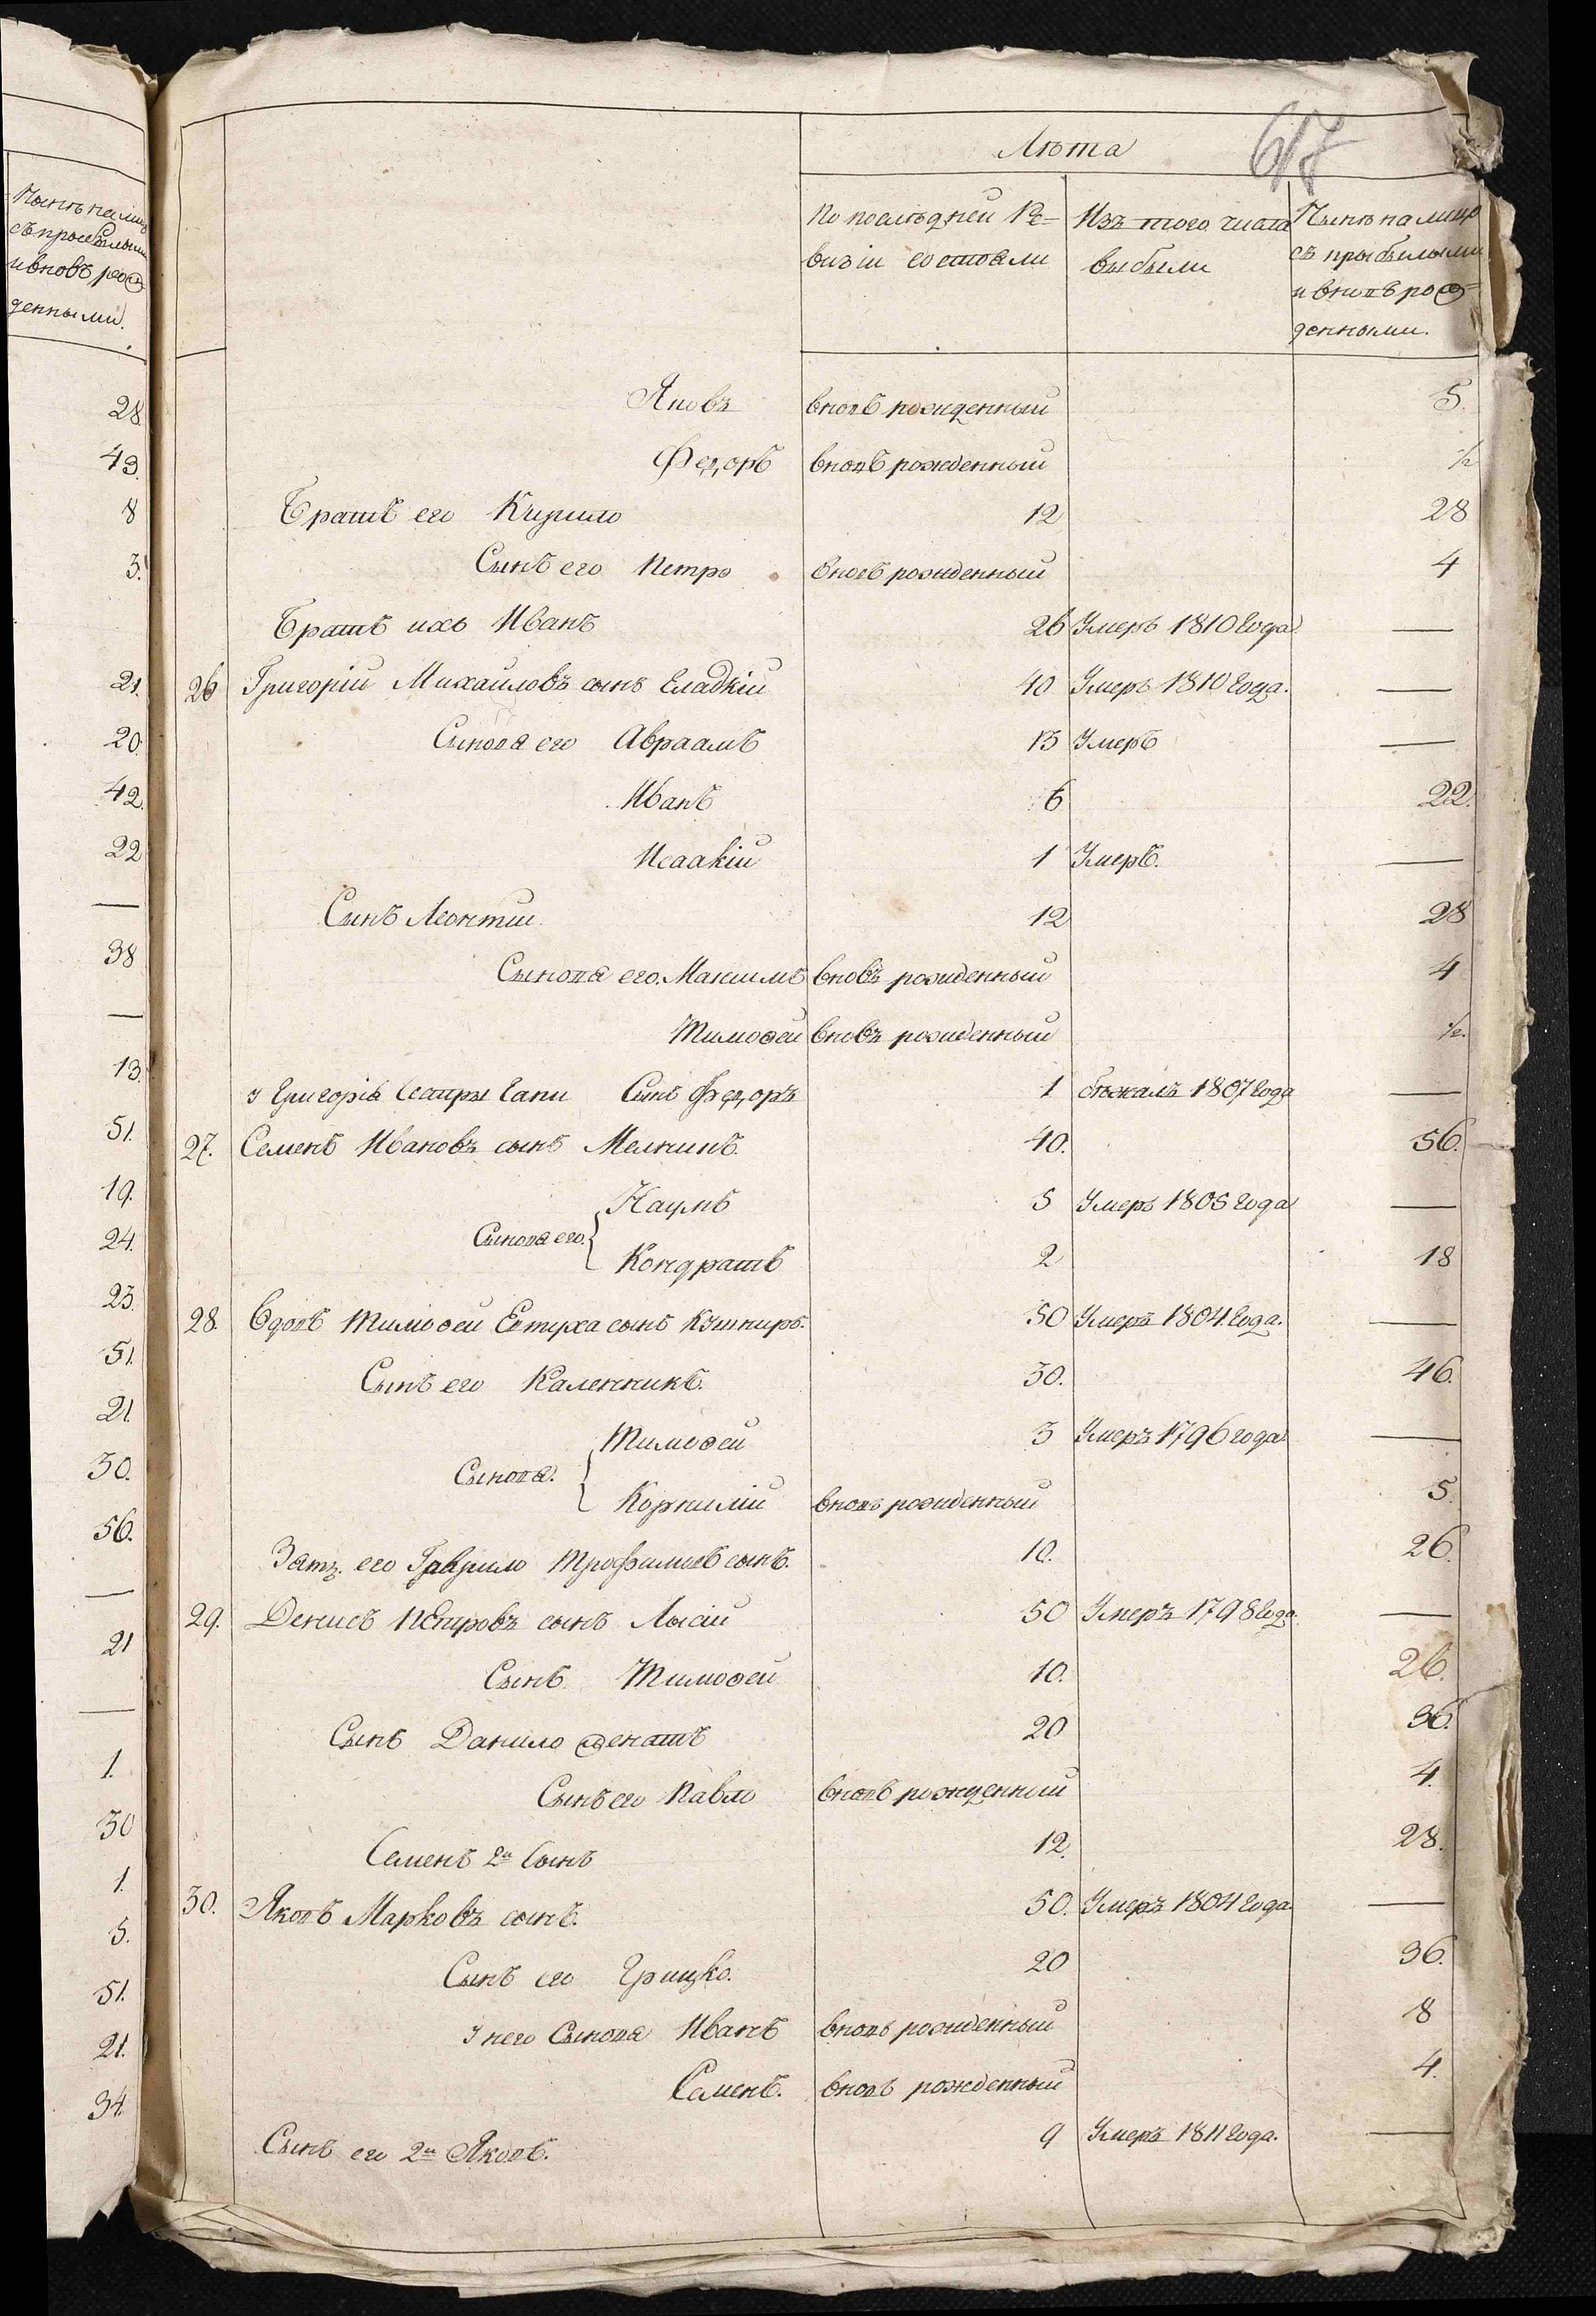 Нынѣ на лицо
съ прибылыми
и вновь рож-
денными.
28
43
8
3.
21.
20.
42.
22
—
38
—
13.
51.
19.
24.
23.
51.
21.
30.
56.
—
21
—
1.
30
1.
5.
51.
21.
34.
617
Лѣта
По послѣдней Ре-
визіи состояли
Изъ того числа
выбыли
Нынѣ на лицо
съ прыбылыми
и вновь рож-
денными.
Яковъ вновь рожденный 5.
Федоръ вновь рожденный ½
Братъ его Кирило 12 28
Сынъ его Петро вновь рожденный 4
Братъ ихъ Иванъ 26 Умеръ 1810 Года —
26 Григорій Михайловъ сынъ Гладкій 40 Умеръ 1810 Года. —
Сынова его Авраамъ 13 Умеръ —
Иванъ 6 22.
Исаакій 1 Умеръ. —
Сынъ Леонтій. 12 28
Сынова его. Максимъ вновъ рожденный 4
Тимофей вновъ рожденный ½.
у Григорія Сестры Гапи Сынъ Федоръ 1 бѣжалъ 1807 Года —
27. Семенъ Ивановъ сынъ 40. 56.
Сынова его. { Наумъ 5 Умеръ 1805 Года —
Кондратъ 2 18
28. Вдовъ Тимофей Евтуха сынъ Кушниръ. 50 Умеръ 1804. Года. —
Сынъ его Каленникъ. 30. 46.
Сынова. { Тимофей 3 Умеръ 1796 года —
Корнилій вновь рожденный 5.
Зять. его Гаврило Трофимовъ сынъ. 10. 26.
29. Денисъ Петровъ сынъ Лысій 50 Умеръ 1798 Года. —
Сынъ. Тимофей 10. 26.
Сынъ Данило женатъ 20 36.
Сынъ его Павло вновь рожденный 4.
Семенъ 2й Сынъ 12. 28.
30. Яковъ Марковъ сынъ. 50. Умеръ 1804 Года. —
Сынъ его Грицко. 20 36.
у него Сынова Иванъ вновь рожденный 8
Семенъ. вновь рожденный 4.
Сынъ его 2й Яковъ. 9 Умеръ 1811 Года. —